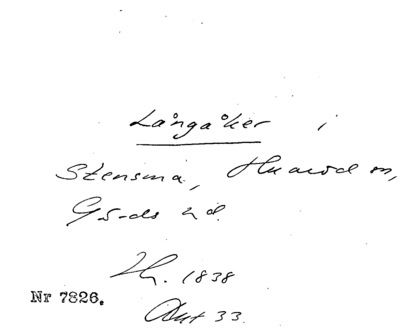 Långåker i
Stensma, Huaröd sn,
Gärds hd.
Lh. 1838
Nr 7826.
Akt 33.